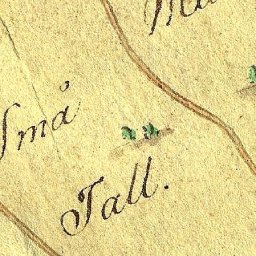 Små
Tall.